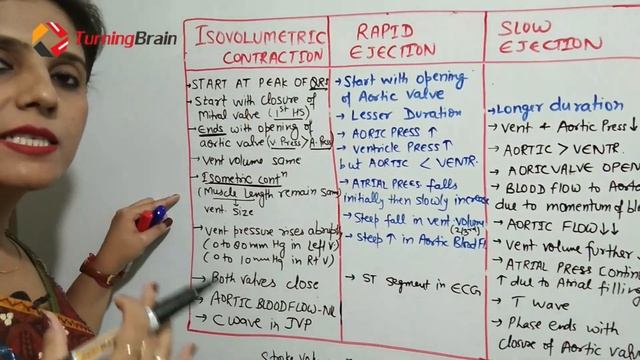 TurningBrain
ISOVOLUMETRIC
CONTRACTION
START AT PEAK OF QRS
Start with closure of
Mitral valve (1st HS)
Ends with opening of
aortic valve (V. Press > A. Pres
vent volume same
Isometric contn
(Muscle Length remain same)
vent. size
vent pressure rises abruptly
(0 to 80mm Hg in left V)
(0 to 10mm Hg in Rt V)
Both valves close
AORTIC BLOOD FLOW-NIL
C wave in JVP
RAPID
EJECTION
Start with opening
of Aortic valve
Lesser Duration
AORIC PRESS ↑
ventricle PRESS ↑
but AORTIC < VENTR.
ATRIAL PRESS falls
initially then slowly increase
Steep fall in vent. volume
(2/3rd)
Steep ↑ in Aortic Blood Fl
ST segment in ECG
SLOW
EJECTION
Longer duration
Vent & Aortic Press ↓
AORTIC > VENTR.
AORIC VALVE OPEN
BLOOD FLOW to Aorta
due to momentum of blo
AORTIC FLOW ↓↓
Vent volume further ↓
ATRIAL PRESS Contin
↑ due to Atrial filling
T wave
Phase ends with
closure of Aortic valve
Stroke vol